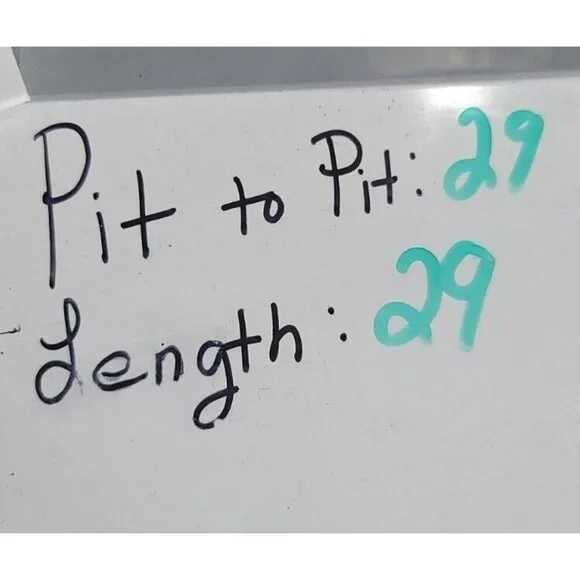 Pit to Pit: 29
Length: 29